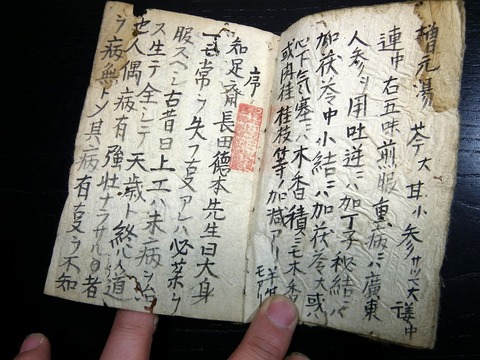 増元湯 苓大 甘小 参サツマ大 連中
連中 右五味煎服 重病ニハ廣東
人参ヲ用 吐逆ニハ加丁子 秘結ニハ
加茯苓中 小結ニハ加茯苓大 或ハ
心下気塞ニハ木香 積ニモ木香
或肉桂桂枝等ノ加減アリ
モアリ
序
知足齋長田徳本先生曰大身
一モ常ヲ失フ叓アレハ必薬ヲ
服スヘシ古昔曰上工ハ未病ヲ治
ス生テ全シテ天歳ト終ルハ道
也人偶病有強壮ナラサルノ者
ヲ病無トン其病有叓ヲ不知